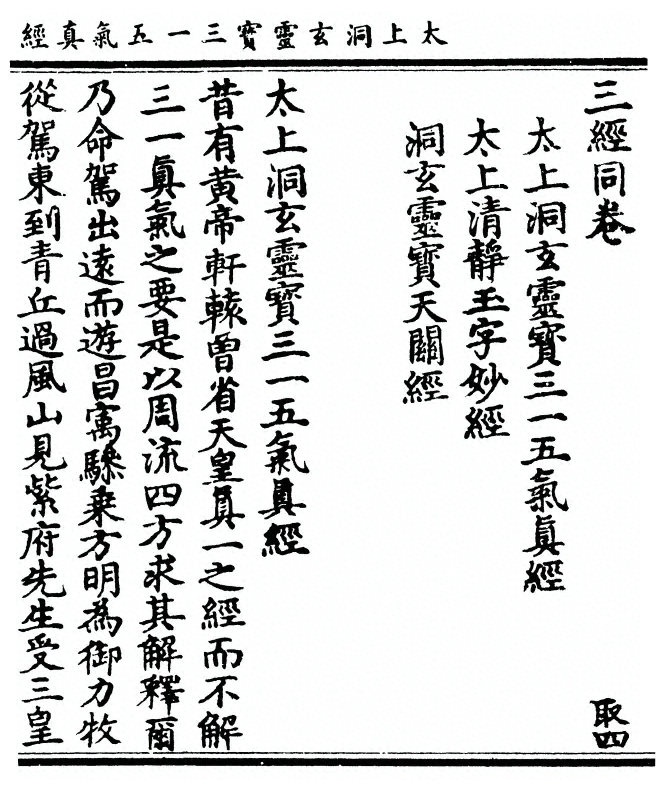 太上洞玄靈寳三一五氣真經
三經同卷
太上洞玄靈寳三一五氣真經
太上清靜玉字妙經
洞玄靈寳天關經
取四
太上洞玄靈寳三一五氣真經
昔有黃帝軒轅曽省天皇真一之經而不解
三一真氣之要是以周流四方求其解釋爾
乃命駕出遠而遊昌㝢驂乗方明為御力牧
從駕東到青丘過風山見紫府先生受三皇